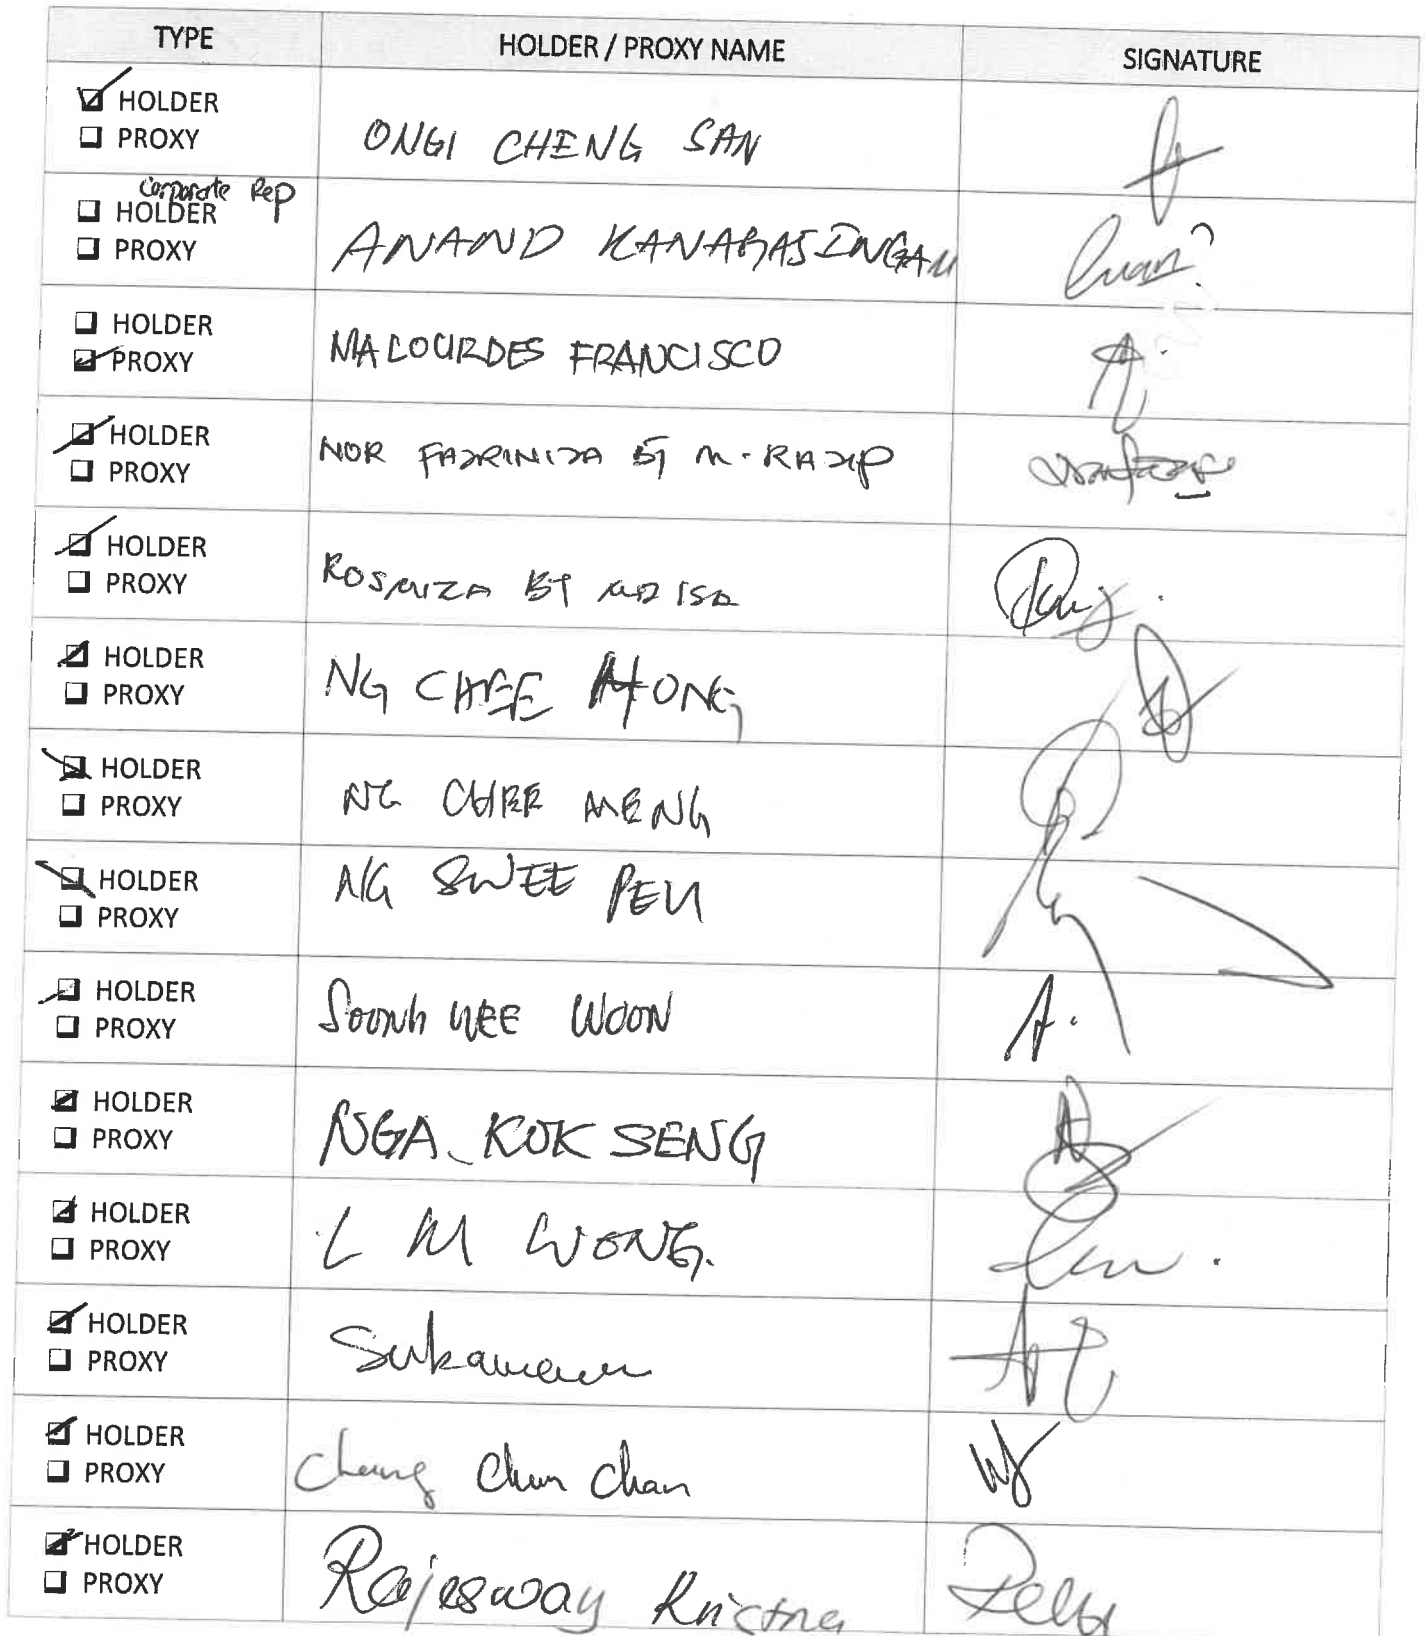 TYPE HOLDER / PROXY NAME SIGNATURE
☑ HOLDER
☐ PROXY
ONG CHENG SAN
Corporate Rep
☐ HOLDER
☐ PROXY
ANAND KANAGASINGAM
☐ HOLDER
☑ PROXY
MA LOURDES FRANCISCO
☑ HOLDER
☐ PROXY
NOR FADRINIZA BT M. RADZP
☑ HOLDER
☐ PROXY
ROSMIZA BT MD ISA
☑ HOLDER
☐ PROXY
NG CHEE HONG
☑ HOLDER
☐ PROXY
NG CHEE MENG
☑ HOLDER
☐ PROXY
NG SWEE PEU
☑ HOLDER
☐ PROXY
Soong WEE WOON
☑ HOLDER
☐ PROXY
NGA KOK SENG
☑ HOLDER
☐ PROXY
L M WONG.
☑ HOLDER
☐ PROXY
☑ HOLDER
☐ PROXY
Chung Chun Chan
☑ HOLDER
☐ PROXY
Rajesway Kristna